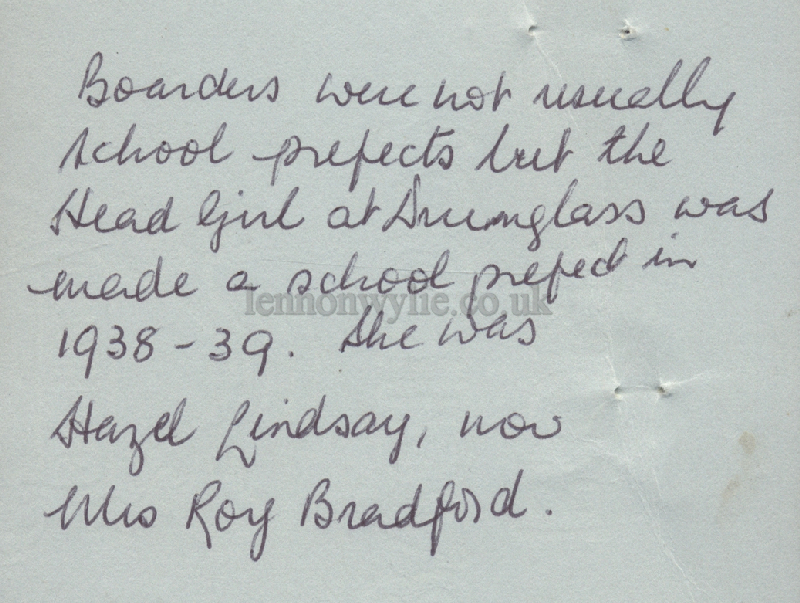 Boarders were not usually
school prefects but the
Head Girl at Drumglass was
made a school prefect in
lennonwylie.co.uk
1938-39. She was
Hazel Lindsay, now
Mrs Roy Bradford.